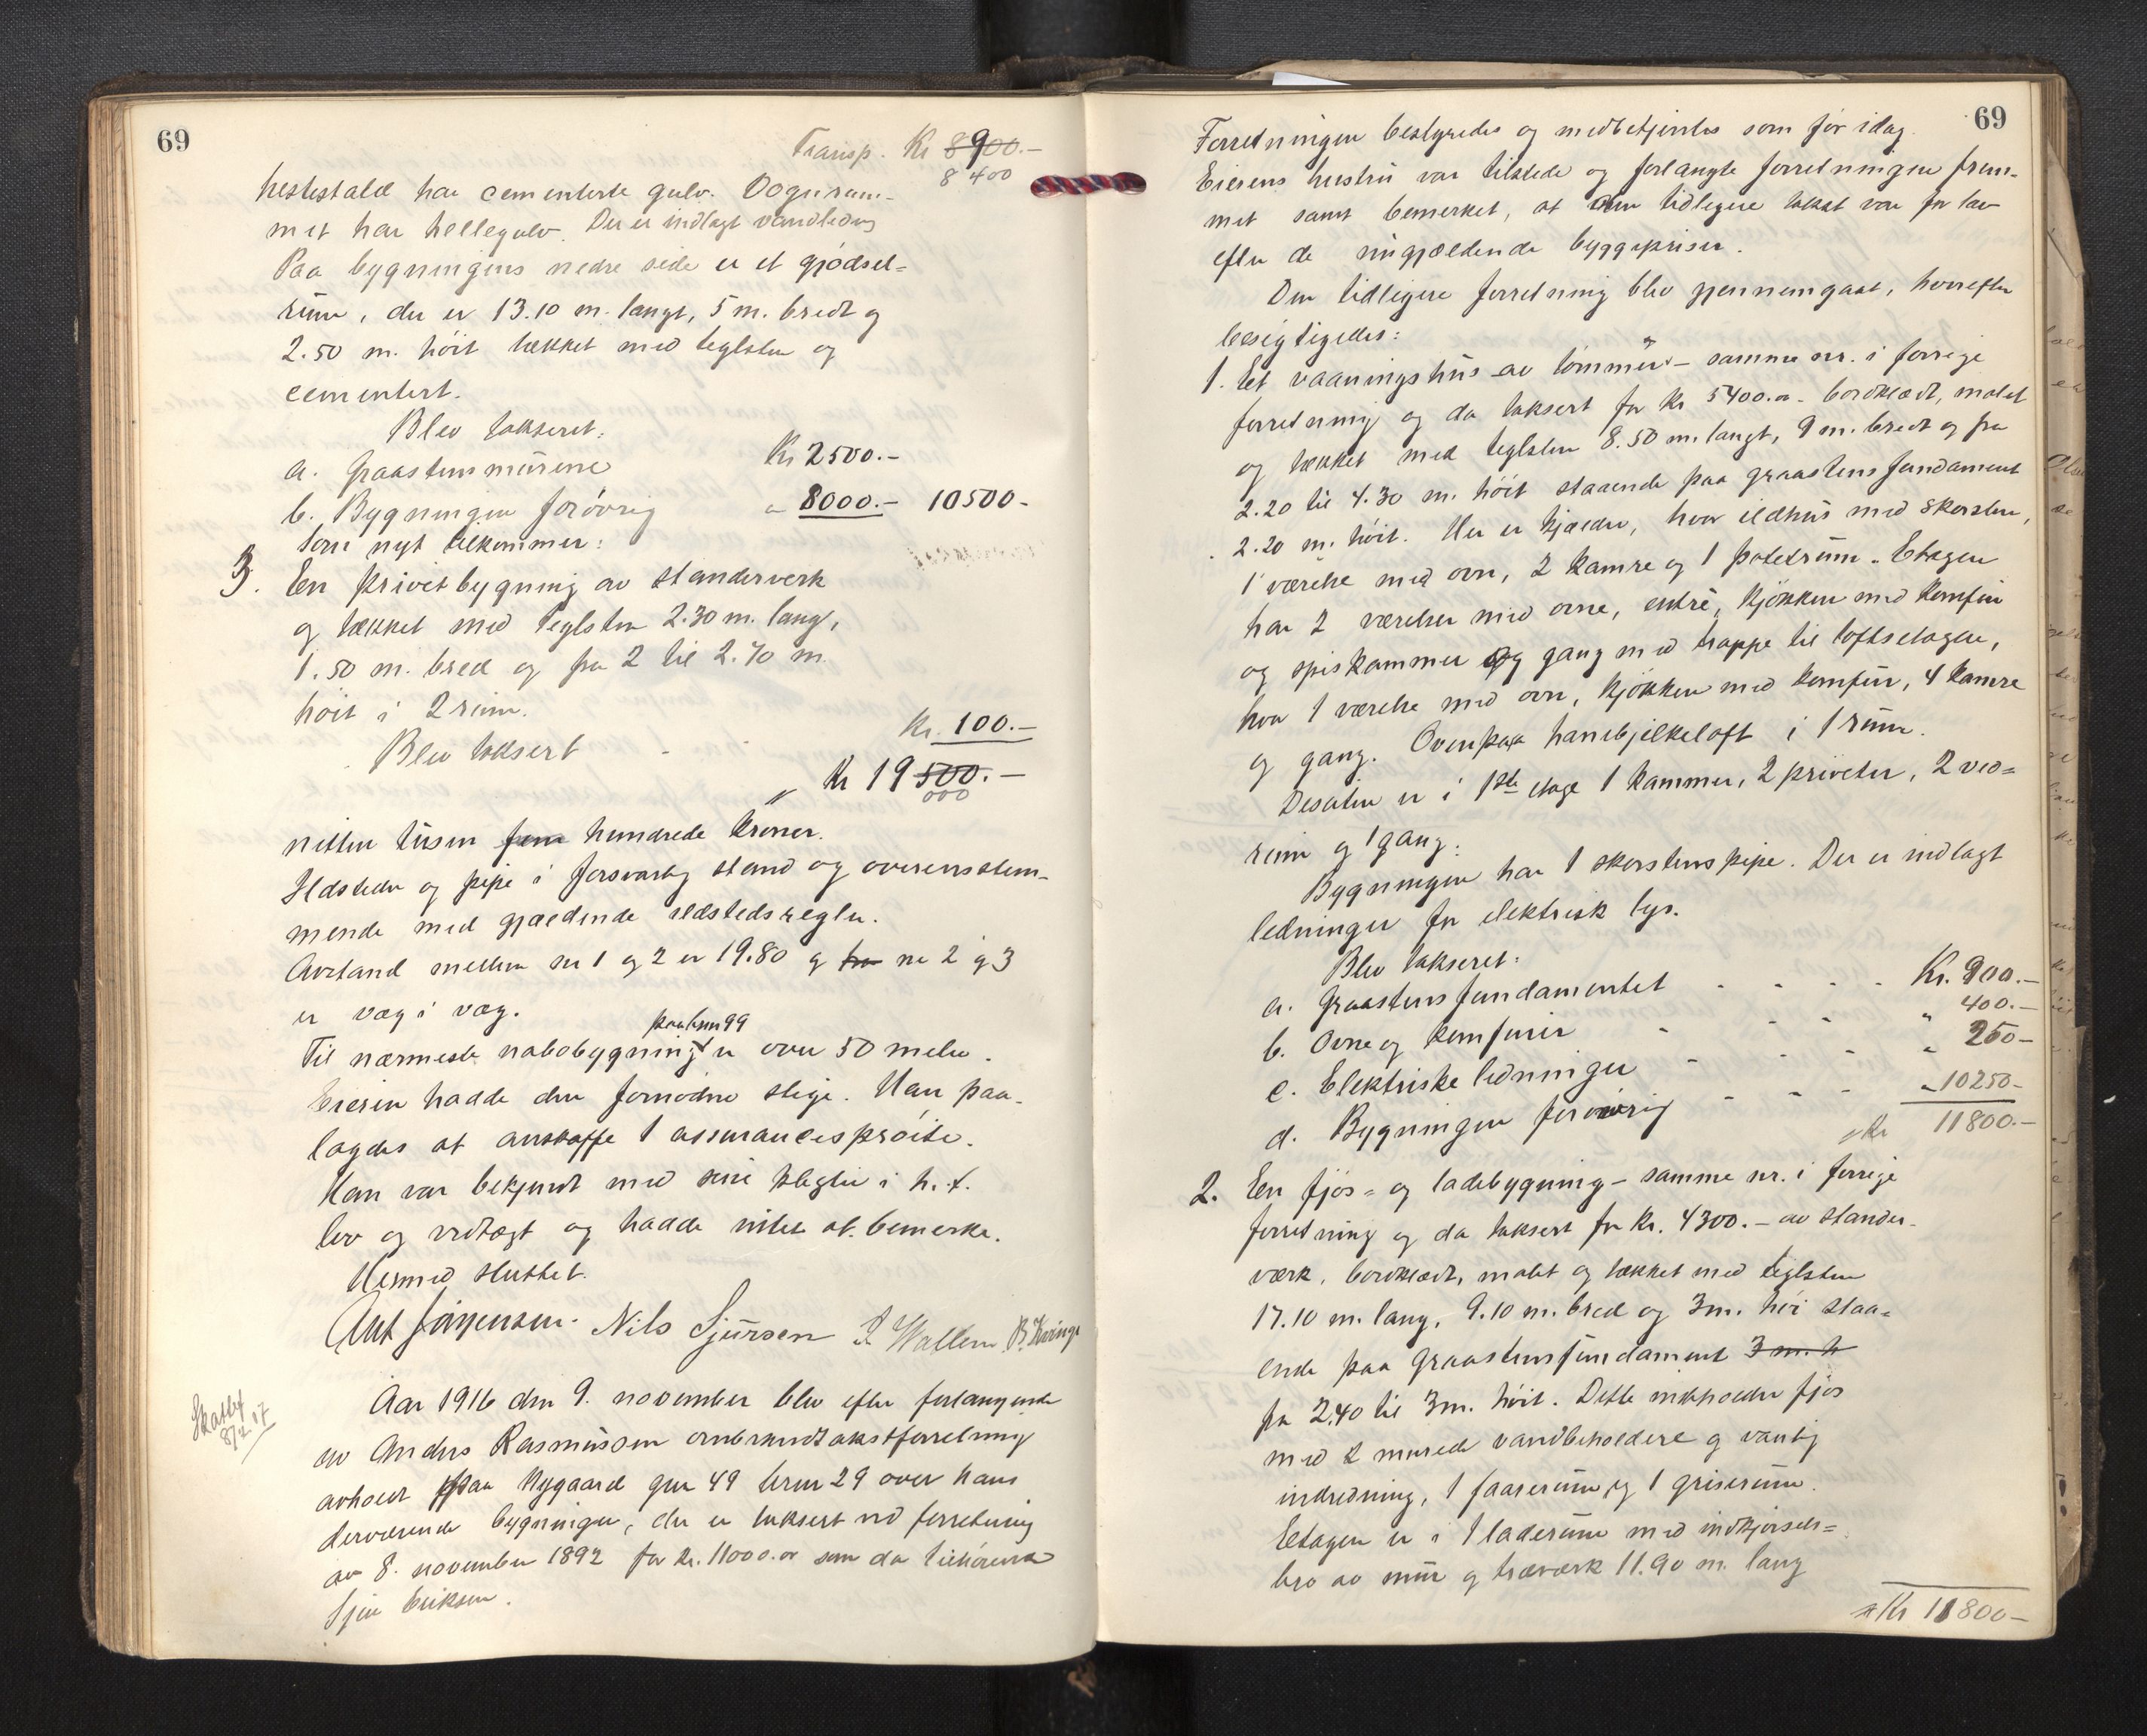 69
Transp. Kr 8900.-
8400
hestestald har cementerte gulv. Vognrum-
met har hellegulv. Der er indlagt vandledning
Paa bygningens nedre side er et gjødsel-
rum, der er 13.10 m. langt, 5 m. bredt og
2.50 m. høit tækket med teglsten og
cementert.
Blev takseret:
a. Graastensmurene Kr 2500.-
b. Bygningen forøvrig " 8000.- 10500-
Som nyt tilkommer:
3. En privetbygning av standerverk
og tækket med teglsten 2.30 m. lang,
1.50 m. bred og fra 2 til 2.70 m.
høit i 2 rum.
Blev taksert - Kr. 100.-
Kr 19500.-
000
nitten tusen fem hundrede kroner.
Ildsteder og pipe i forsvarlig stand og overensstem-
mende med gjældende ildstedsregler.
Avstand mellem nr 1 og 2 er 19.80 og fra nr 2 og 3
er væg i væg.
paa brn 99
Til nærmeste nabobygning er over 50 meter.
Eieren hadde den fornødne stige. Han paa-
lagdes at anskaffe 1 assurancesprøite.
Han var bekjendt med sine pligter i h. t.
lov og vedtægt og hadde intet at bemerke.
Hermed sluttet.
Ant Jørgensen. Nils Sjursen I Wallem B. Kvinge
Skattef
8/2.17
Aar 1916 den 9. november blev efter forlangende
av Anders Rasmussen ombrandtakstforretning
avholdt paa Nygaard gnr 49 brnr 29 over hans
derværende bygninger, der er taksert ved forretning
av 8. november 1892 for kr. 11000.00 som da tilhørende
Sjur Eriksen.
69
Forretningen bestyredes og medbetjentes som før idag.
Eierens hustru var tilstede og forlangte forretningen frem-
met samt bemerket, at den tidligere takst var for lav
efter de nugjældende byggepriser.
Den tidligere forretning blev gjennemgaat, hvorefter
besigtigedes:
1. Et vaaningshus av tømmer - samme nr. i forrige
forretning og da taksert for kr 5400.00 - bordklædt, malet
og tækket med teglsten 8.50 m. langt, 9 m. bredt og fra
2.20 til 4.30 m. høit staaende paa graastensfundament
2.20 m. høit. Her er kjælder, hvor ildhus med skorsten,
1 værelse med ovn, 2 kamre og 1 potetrum. Etagen
har 2 værelser med ovne, entré, kjøkken med komfur
og spiskammer og gang med trappe til loftsetagen,
hvor 1 værelse med ovn, kjøkken med komfur, 4 kamre
og gang. Ovenpaa hanebjelkeloft i 1 rum.
Desuten er i 1ste etage 1 kammer, 2 priveter, 2 ved-
rum og 1 gang.
Bygningen har 1 skorstenspipe. Der er indlagt
ledninger for elektrisk lys.
Blev takseret:
a. Graastensfundamentet - - - - Kr. 900.-
b. Ovne og komfurer - - - " 400.-
c. Elektriske ledninger - - - " 250-
d. Bygningen forøvrig - - - " 10250-
Kr 11800.-
2. En fjøs- og ladebygning - samme nr. i forrige
forretning og da taksert for kr. 4300.- av stander-
værk, bordklædt, malet og tækket med teglsten
17.10 m. lang, 9.10 m. bred og 3 m. høi staa-
ende paa graastensfundament 3 m. h
fra 2.40 til 3 m. høit. Dette indeholder fjøs
med 2 murede vandbeholdere og vanlig
indredning, 1 faarerum og 1 griserum.
Etagen er i 1 laderum med indkjørsels-
bro av mur og træværk 11.90 m. lang
Kr 11800-